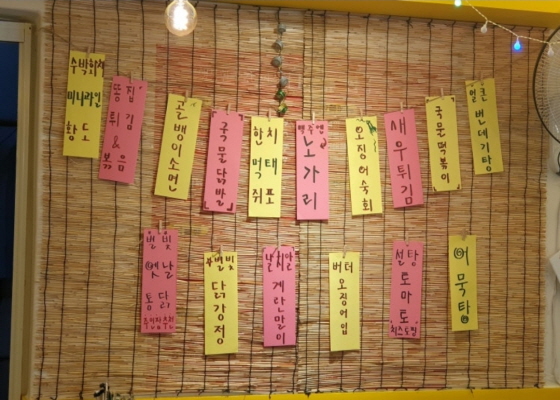 수박화채
미니라면
황도
똥집
튀김
&
볶음
골뱅이소면
국물닭발
한치
먹태
쥐포
맥주엔
노가리
오징어숙회
새우튀김
국물떡볶이
얼큰
번데기탕
별빛
옛날
통닭
주인장추천
별빛
닭강정
날치알
계란말이
버터
오징어입
설탕
토마토
어묵탕